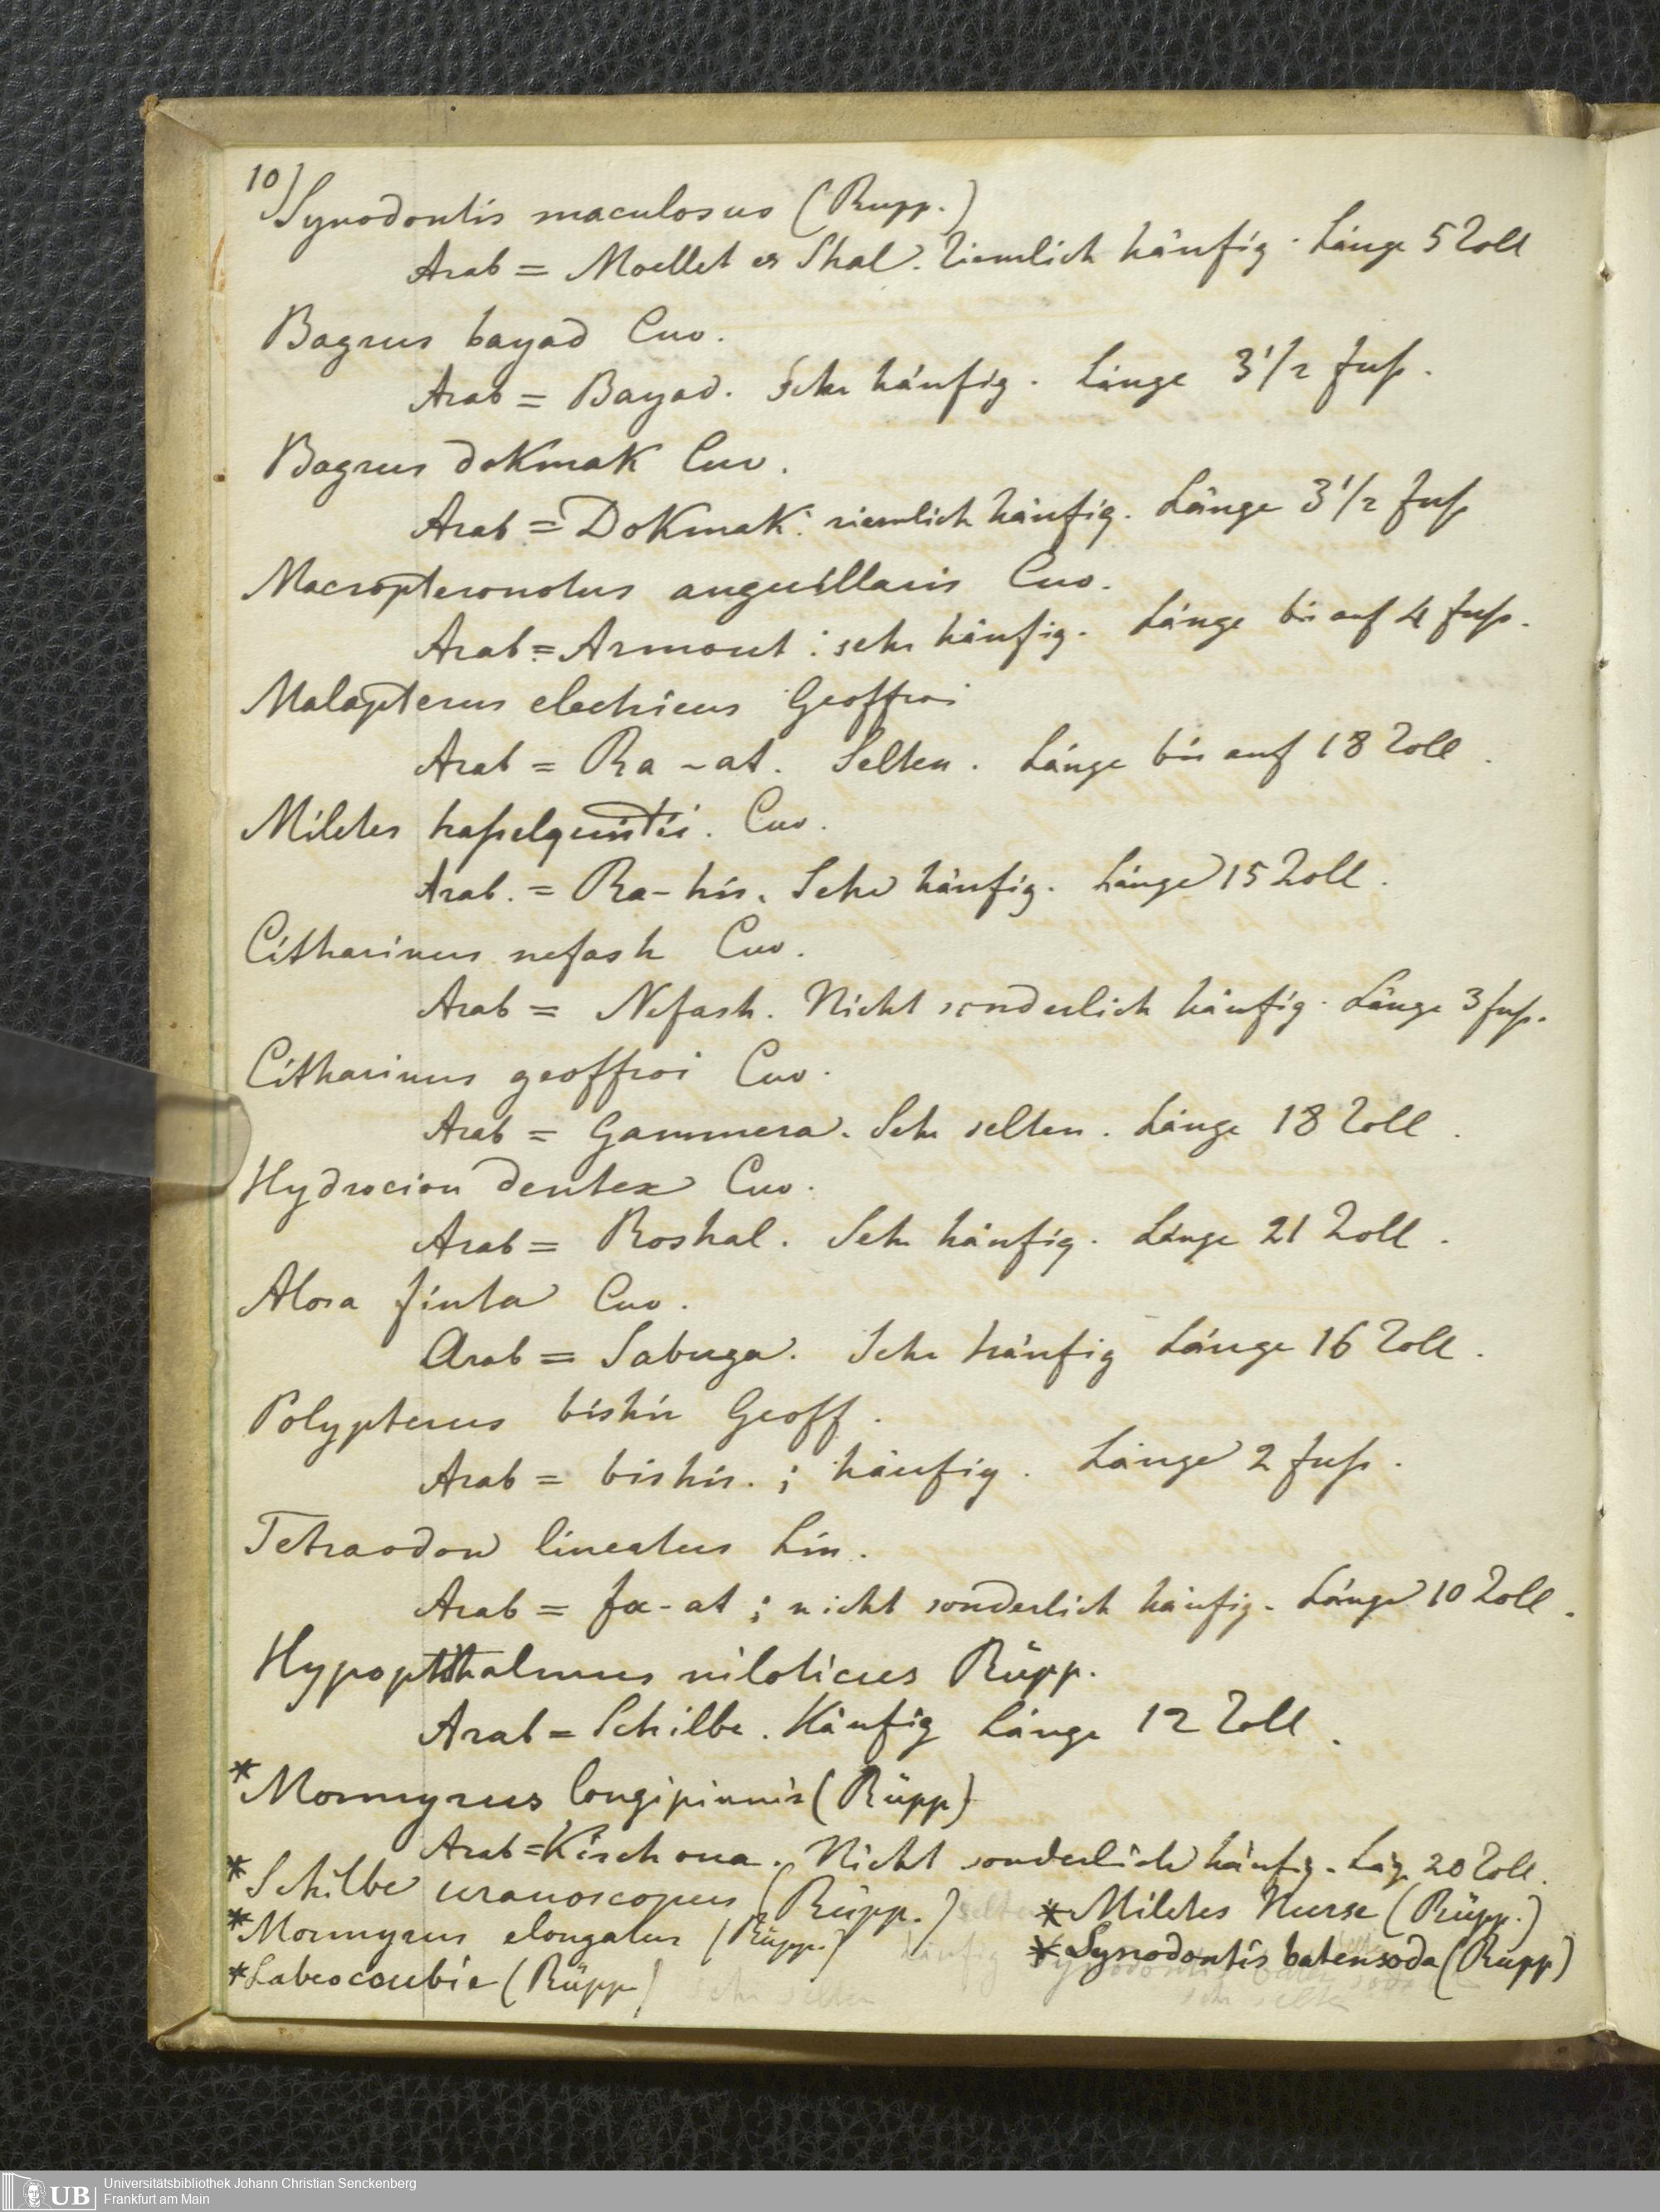 10)
Synodontis maculosus (Rupp.)
Arab = Moellet es Shal. Ziemlich häufig. Länge 5 Zoll
Bagrus bayad Cuv.
Arab = Bayad. Sehr häufig. Länge 3 1/2 fuß.
Bagrus dokmak Cuv.
Arab = Dokmak: ziemlich häufig. Länge 3 1/2 fuß
Macropteronotus anguillaris Cuv.
Arab = Armout: sehr häufig. Länge bis auf 4 fuß.
Malapterus electricus Geoffroi
Arab = Ra-at. Selten. Länge bis auf 18 Zoll.
Miletes haßelquistii. Cuv.
Arab. = Ra-his. Sehr häufig. Länge 15 Zoll.
Citharinus nefash Cuv.
Arab = Nefash. Nicht sonderlich häufig. Länge 3 fuß.
Citharinus geoffroi Cuv.
Arab = Gammera. Sehr selten. Länge 18 Zoll.
Hydrocion dentex Cuv.
Arab = Roshal. Sehr häufig. Länge 21 Zoll.
Alosa finta Cuv.
Arab = Sabuga. Sehr häufig Länge 16 Zoll.
Polypterus bishir Geoff.
Arab = bishir.; häufig. Länge 2 fuß.
Tetraodon lineatus Lin.
Arab = fa-at; nicht sonderlich häufig. Länge 10 Zoll.
Hypopthalmus niloticus Rüpp.
Arab = Schilbe. Häufig Länge 12 Zoll.
*Mormyrus longipinnis (Rüpp)
Arab = Kischoua. Nicht sonderlich häufig. Läg. 20 Zoll.
*Schilbe uranoscopus (Rüpp.) selten *Miletes Nurse (Rüpp.)
*Mormyrus elongatus (Rüpp.) häufig *Synodontis batensoda (Rupp)
*Labeo coubie (Rüpp) sehr selten sehr selten
Universitätsbibliothek Johann Christian Senckenberg
UB Frankfurt am Main